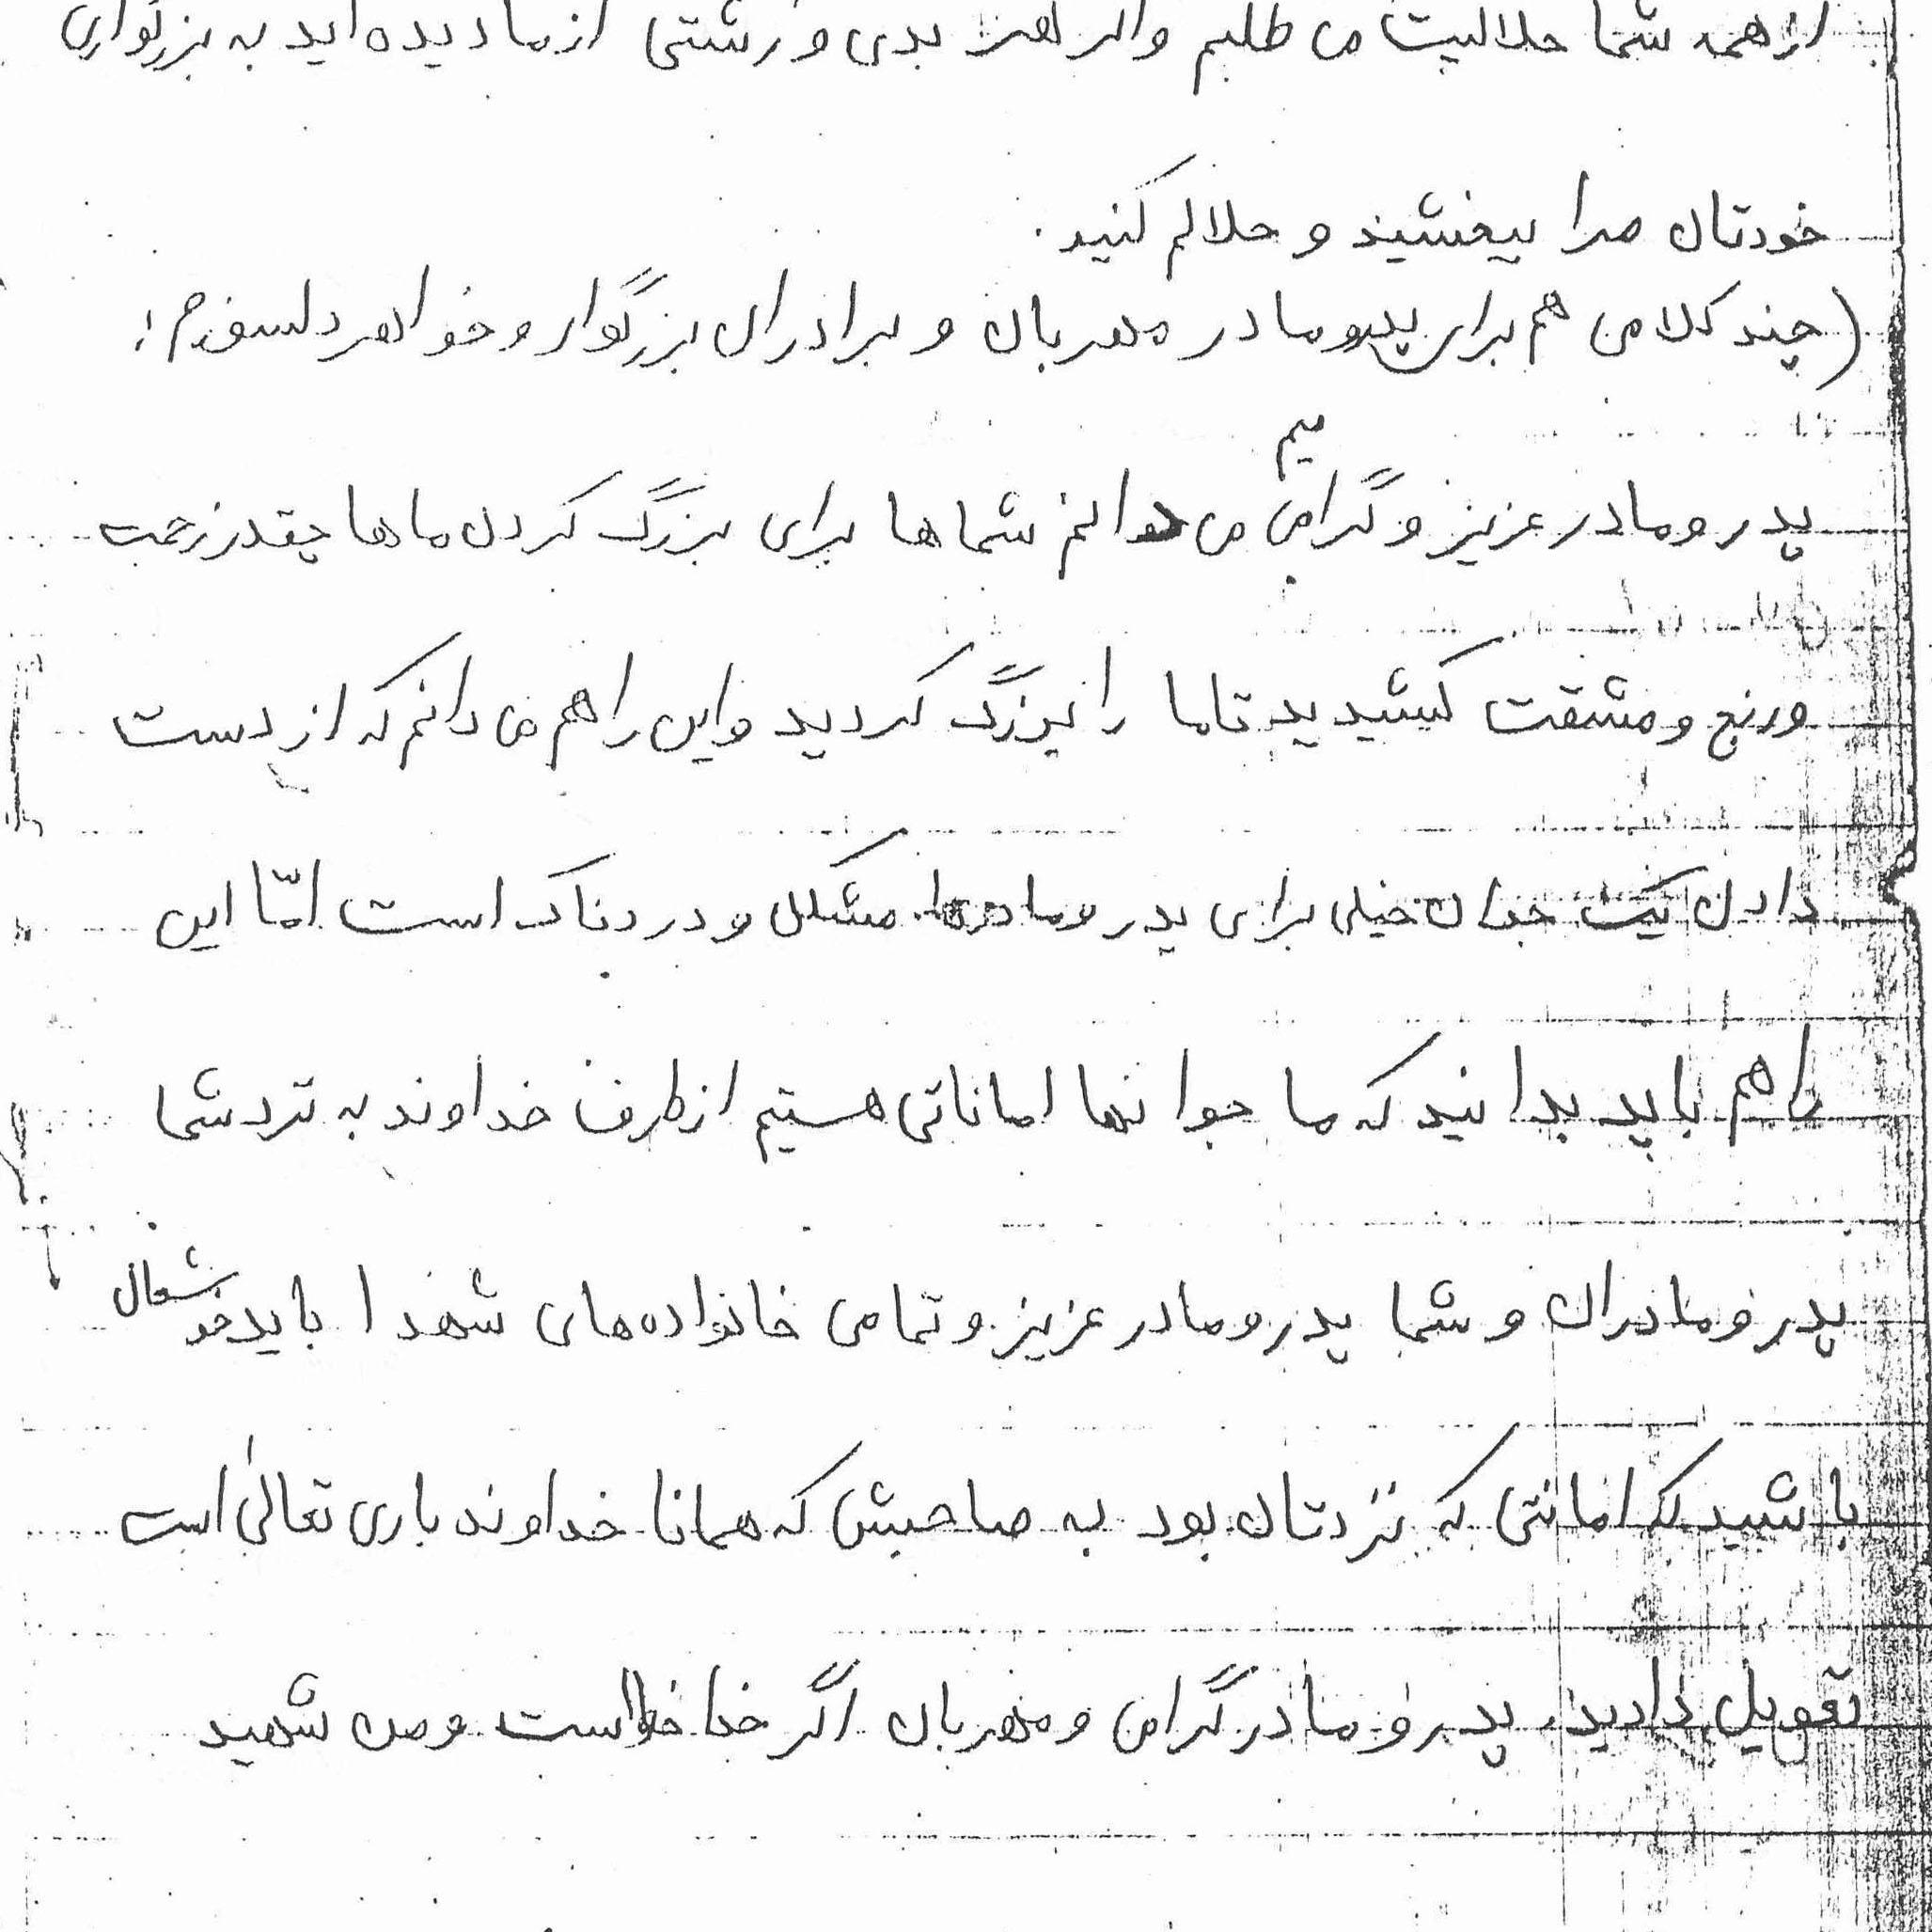 از همه شما حلالیت می طلبم و اگر هر بدی و زشتی از ما دیده اید به بزرگواری
خودتان مرا ببخشید و حلالم کنید.
(چند کلامی هم برای پدر و مادر مهربان و برادران بزرگوار و خواهر دلسوزم:
پدر و مادر عزیز و گرامیم می دانم شماها برای بزرگ کردن ماها چقدر زحمت
و رنج و مشقت کشیدید تا ما را بزرگ کردید و این را هم می دانم که از دست
دادن یک جوان خیلی برای پدر و مادرها مشکل و دردناک است امّا این
را هم باید بدانید که ما جوانها اماناتی هستیم از طرف خداوند به نزد شما
پدر و مادران و شما پدر و مادر عزیز و تمامی خانواده های شهدا باید خوشحال
باشید که امانتی که نزدتان بود به صاحبش که همانا خداوند باری تعالیٰ است
تحویل دادید. پدر و مادر گرامی و مهربان اگر خدا خواست و من شهید